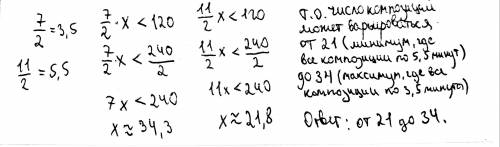 7/2 = 3,5
11/2 = 5,5
7/2 · x < 120
7/2 x < 240/2
7x < 240
x ≈ 34,3
11/2 x < 120
11/2 x < 240/2
11x < 240
x ≈ 21,8
Т.О. число композиций
может варьироваться
от 21 (минимум, где
все композиции по 5,5 минут)
до 34 (максимум, где все
композиции по 3,5 минуты)
Ответ: от 21 до 34.